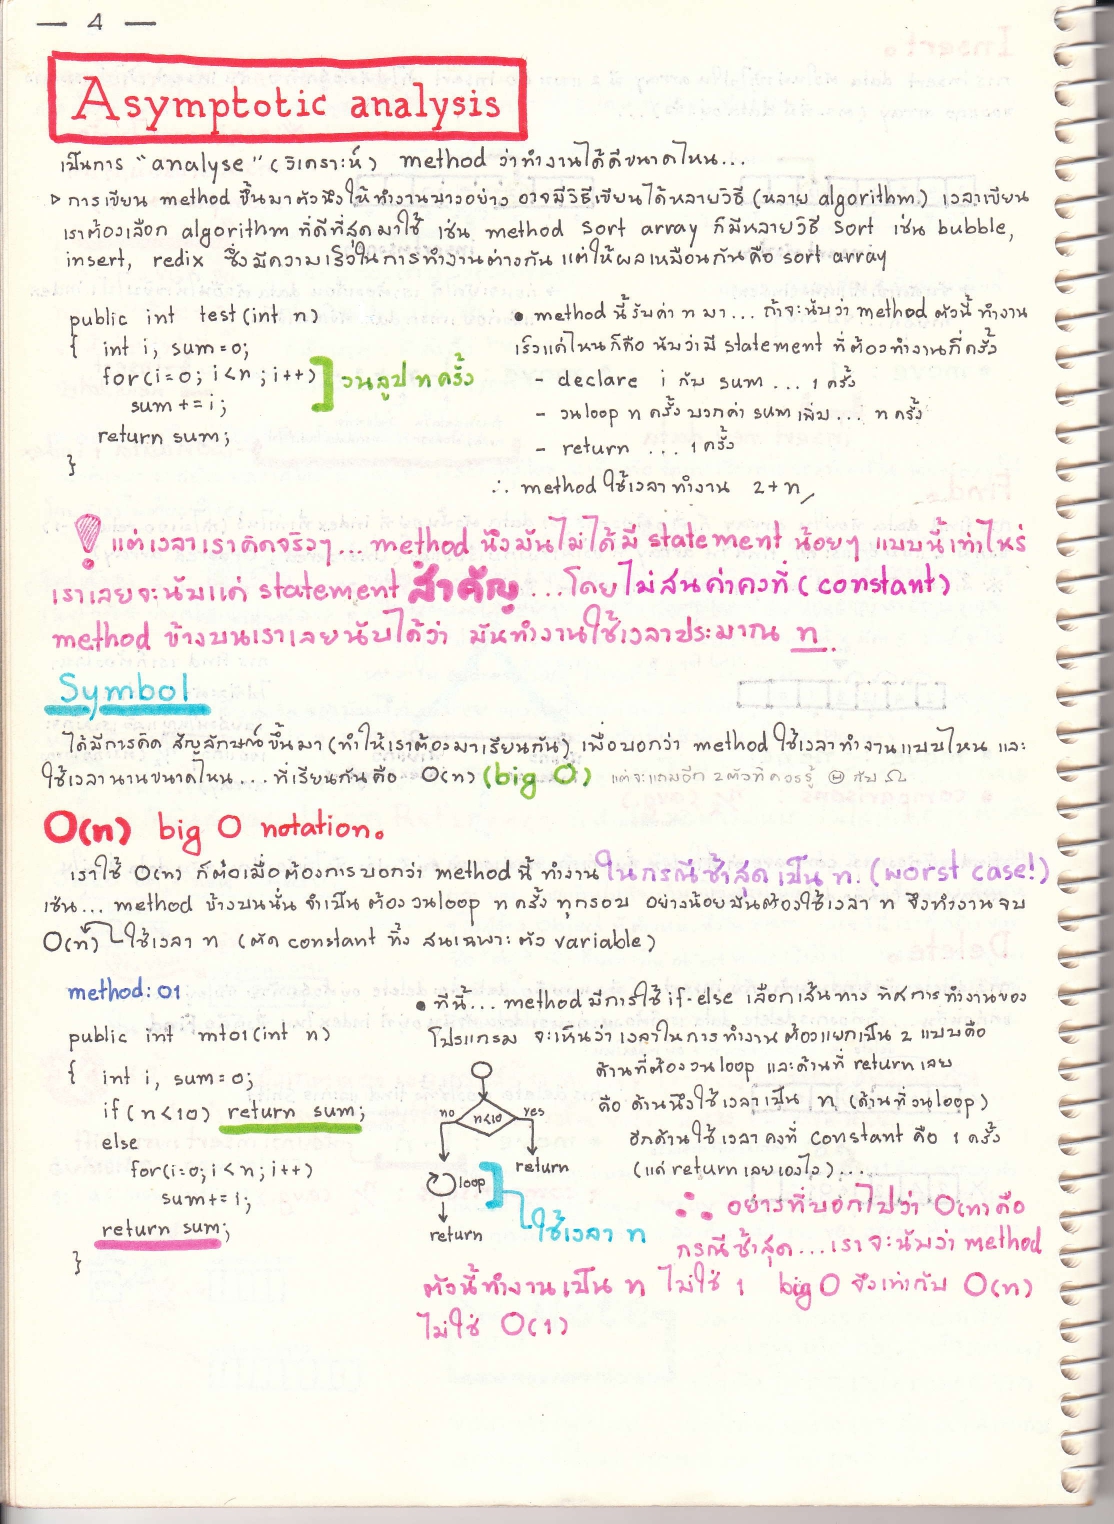 — 4 —
Asymptotic analysis
เป็นการ "analyse" (วิเคราะห์) method ว่าทำงานได้ดีขนาดไหน...
▷ การเขียน method ขึ้นมาตัวนึงให้ทำงานบางอย่าง อาจมีวิธีเขียนได้หลายวิธี (หลาย algorithm) เวลาเขียน
เราต้องเลือก algorithm ที่ดีที่สุดมาใช้ เช่น method sort array ก็มีหลายวิธี sort เช่น bubble,
insert, redix ซึ่งมีความเร็วในการทำงานต่างกัน แต่ให้ผลเหมือนกันคือ sort array
public int test(int n)
{ int i, sum=0;
for(i=0; i<n; i++)
sum+=i;
return sum;
}
วนลูป n ครั้ง
• method นี้รับค่า n มา... ถ้าจะนับว่า method ตัวนี้ ทำงาน
เร็วแค่ไหนก็คือ นับว่ามี statement ที่ต้องทำงานกี่ครั้ง
- declare i กับ sum ... 1 ครั้ง
- วนloop n ครั้ง บวกค่า sum เพิ่ม... n ครั้ง
- return ... 1 ครั้ง
∴ method ใช้เวลาทำงาน 2+n
! แต่เวลาเราคิดจริงๆ... method นึงมันไม่ได้มี statement น้อยๆ แบบนี้เท่าไหร่
เราเลยจะนับแค่ statement สำคัญ ...โดยไม่สนค่าคงที่ (constant)
method ข้างบนเราเลยนับได้ว่า มันทำงานใช้เวลาประมาณ n.
Symbol
ได้มีการคิด สัญลักษณ์ขึ้นมา (ทำให้เราต้องมาเรียนกัน) เพื่อบอกว่า method ใช้เวลาทำงานแบบไหน และ
ใช้เวลานานขนาดไหน... ที่เรียนกันคือ O(n) (big O) แต่จะแถมอีก 2 ตัวที่ควรรู้ Θ กับ Ω
O(n) big O notation.
เราใช้ O(n) ก็ต่อเมื่อต้องการบอกว่า method นี้ ทำงานในกรณีช้าสุดเป็น n. (worst case!)
เช่น... method ข้างบนนั่น จำเป็นต้องวนloop n ครั้ง ทุกรอบ อย่างน้อยมันต้องใช้เวลา n จึงทำงานจบ
O(n) ใช้เวลา n (ตัด constant ทิ้ง สนเฉพาะตัว variable)
method: 01
public int mt01(int n)
{ int i, sum=0;
if(n<10) return sum;
else
for(i=0; i<n; i++)
sum+=i;
return sum;
}
no
n<10
yes
loop
return
return
ใช้เวลา n
• ทีนี้... method มีการใช้ if-else เลือกเส้นทาง ทิศการทำงานของ
โปรแกรม จะเห็นว่า เวลาในการทำงานต้องแยกเป็น 2 แบบคือ
ด้านที่ต้องวนloop และด้านที่ return เลย
คือ ด้านนึงใช้เวลาเป็น n (ด้านที่วนloop)
อีกด้านใช้เวลา คงที่ constant คือ 1 ครั้ง
(แค่ return เลยเองไง)...
∴ อย่างที่บอกไปว่า O(n) คือ
กรณีช้าสุด... เราจะนับว่า method
ตัวนี้ทำงานเป็น n ไม่ใช่ 1 big O จึงเท่ากับ O(n)
ไม่ใช่ O(1)